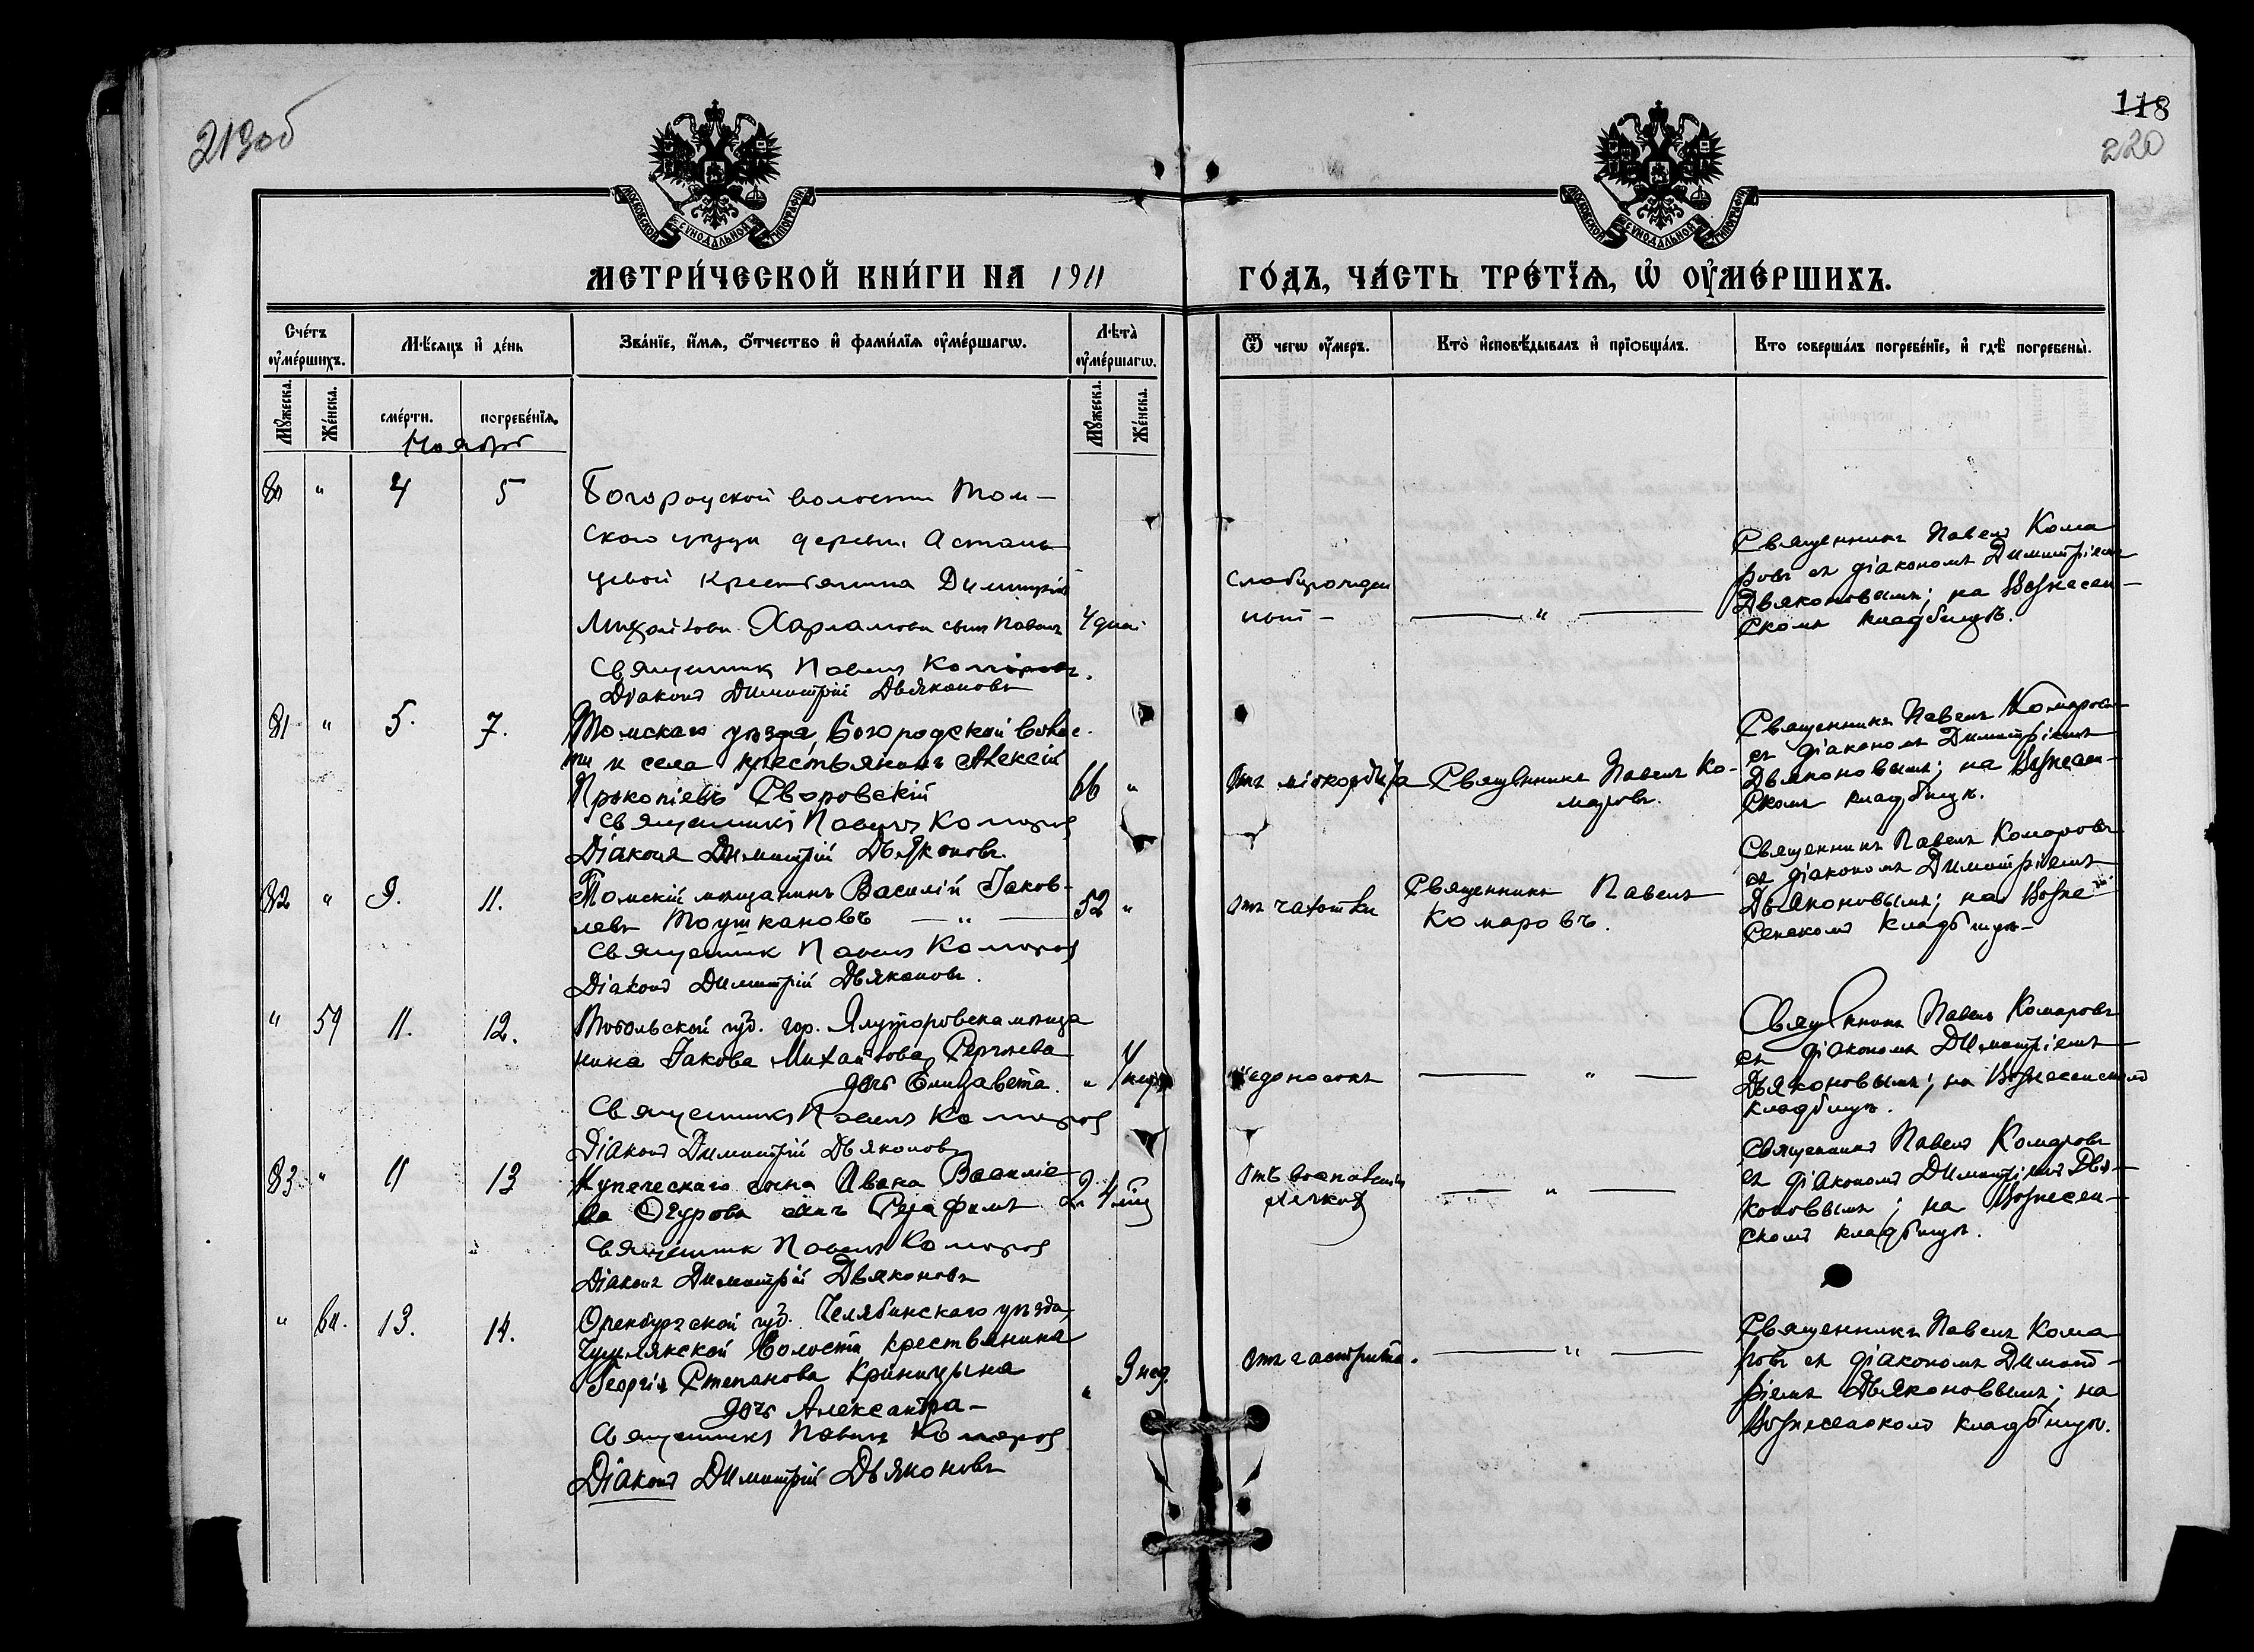 213об
118
220
МОСКОВСКОЙ СУНОДАЛЬНОЙ ТИПОГРАФІИ
МОСКОВСКОЙ СУНОДАЛЬНОЙ ТИПОГРАФІИ
МЕТРИ́ЧЕСКОЙ КНИ́ГИ НА 1911
ГО́ДЪ, ЧА́СТЬ ТРЕ́ТІѦ, Ѡ҆ ОУ҆МЕ́РШИХЪ.
Сче́тъ оу҆ме́ршихъ.
Мѣ́сяцъ и҆ де́нь
Зва́нїе, и҆́мѧ, ѻ҆́тчество и҆ фами́лїѧ оу҆ме́ршагѡ.
Лѣ́та̀ оу҆ме́ршагѡ.
Ѿ чегѡ оу҆́меръ.
Кто̀ и҆сповѣ́дывалъ и҆ прїѻбща́лъ.
Кто соверша́лъ погребе́нїе, и҆ гдѣ̀ погребены̀.
Мꙋ́жеска.
Же́нска.
сме́рти.
погребе́нїѧ.
Мꙋ́жеска.
Же́нска.
Ноябрь
80 " 4 5
Богородской волости Том-
скаго уѣзда деревни Астань
цевой крестьянина Димитрія
Михайлова Харламова сынъ Павелъ 4 дней
Священникъ Павелъ Комаровъ.
Діаконъ Димитрій Дьяконовъ
Слаборожден
ный - — " —
Священникъ Павелъ Кома
ровъ съ діакономъ Димитріемъ
Дьяконовымъ; на Вознесен-
скомъ кладбищѣ.
81 " 5. 7.
Томскаго уѣзда, Богородской волос-
ти и села крестьянинъ Алексій
Прокопіевъ Своровскій 66 "
Священникъ Павелъ Комаровъ
Діаконъ Димитрій Дьяконовъ.
Отъ міокардита
Священникъ Павелъ Ко-
маровъ.
Священникъ Павелъ Комаровъ
съ діакономъ Димитріемъ
Дьяконовымъ; на Вознесен-
скомъ кладбищѣ.
82 " 9. 11.
Томскій мѣщанинъ Василій Іаков-
левъ Тоушкановъ — " — 52 "
Священникъ Павелъ Комаровъ
Діаконъ Димитрій Дьяконовъ.
Отъ чахотки
Священникъ Павелъ
Комаровъ.
Священникъ Павелъ Комаровъ
съ діакономъ Димитріемъ
Дьяконовымъ; на Вознe-
сенскомъ кладбищѣ-
" 59 11. 12.
Тобольской губ. гор. Ялуторовска мѣща
нина Іакова Михайлова Сергѣева
дочь Елизавета. "
Священникъ Павелъ Комаровъ
Діаконъ Димитрій Дьяконовъ
недоносокъ — " —
Священникъ Павелъ Комаровъ
съ діакономъ Димитріемъ
Дьяконовымъ; на Вознесенскомъ
кладбищѣ.
83 " 11 13
Купеческаго сына Ивана Василіе
ва Огурова сынъ Серафимъ
Священникъ Павелъ Комаровъ
Діаконъ Димитрій Дьяконовъ
Отъ воспаленія
легкихъ — " —
Священникъ Павелъ Комаровъ
съ діакономъ Димитріемъ Дья-
коновымъ; на Вознесен-
скомъ кладбищѣ.
" 60. 13. 14.
Оренбургской губ. Челябинскаго уѣзда,
Чумлякской волости крестьянина
Георгія Степанова Криницына
дочь Александра- " 9 нед.
Священникъ Павелъ Комаровъ
Діаконъ Димитрій Дьяконовъ
Отъ гастрита. — " —
Священникъ Павелъ Кома
ровъ съ діакономъ Димит-
ріемъ Дьяконовымъ; на
Вознесенскомъ кладбищѣ.